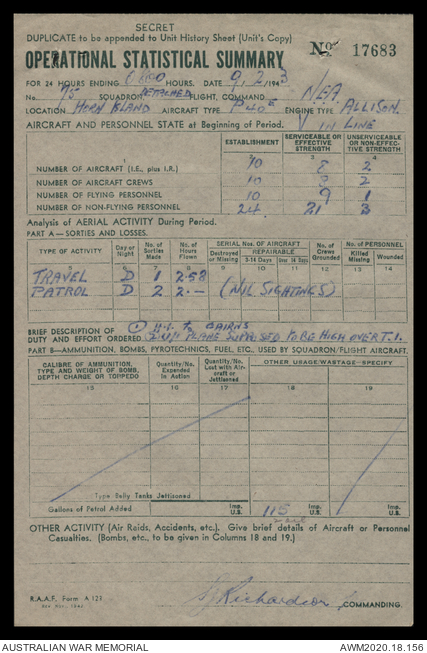 SECRET
DUPLICATE to be appended to Unit History Sheet (Unit's Copy)
OPERATIONAL STATISTICAL SUMMARY No 17683
FOR 24 HOURS ENDING HOURS. DATE 9.2.1943
No. 75 SQUADRON DETACHED FLIGHT, COMMAND NEA
LOCATION HORN ISLAND AIRCRAFT TYPE P40E ENGINE TYPE ALLISON
AIRCRAFT AND PERSONNEL STATE at Beginning of Period. V IN LINE
ESTABLISHMENT SERVICEABLE OR EFFECTIVE STRENGTH UNSERVICEABLE OR NON-EFFECTIVE STRENGTH
1 2 3 4
NUMBER OF AIRCRAFT (I.E., plus I.R.) 10 8 2
NUMBER OF AIRCRAFT CREWS 10 8 2
NUMBER OF FLYING PERSONNEL 10 9 1
NUMBER OF NON-FLYING PERSONNEL 24 21 3
Analysis of AERIAL ACTIVITY During Period.
PART A—SORTIES AND LOSSES.
TYPE OF ACTIVITY Day or Night No. of Sorties Made No. of Hours Flown SERIAL NOS. OF AIRCRAFT Destroyed or Missing REPAIRABLE 2-14 Days Over 14 Days No. of Crews Grounded No. of PERSONNEL Killed Missing Wounded
TRAVEL D 1 2.58
PATROL D 2 2.— (NIL SIGHTINGS)
BRIEF DESCRIPTION OF ① H.I. to CAIRNS
DUTY AND EFFORT ORDERED PLANE SUPPOSED TO BE HIGH OVER T.I.
PART B—AMMUNITION, BOMBS, PYROTECHNICS, FUEL, ETC., USED BY SQUADRON/FLIGHT AIRCRAFT.
CALIBRE OF AMMUNITION, TYPE AND WEIGHT OF BOMB, DEPTH CHARGE OR TORPEDO Quantity/No. Expended in Action Quantity/No. Lost with Aircraft or Jettisoned OTHER USAGE/WASTAGE—SPECIFY
15 16 17 18 19
Type Belly Tanks Jettisoned
Gallons of Petrol Added Imp. U.S. 115 Imp. U.S. Imp. U.S.
OTHER ACTIVITY (Air Raids, Accidents, etc.). Give brief details of Aircraft or Personnel
Casualties. (Bombs, etc., to be given in Columns 18 and 19.)
Richardson COMMANDING.
R.A.A.F. Form A 123
AUSTRALIAN WAR MEMORIAL AWM2020.18.156